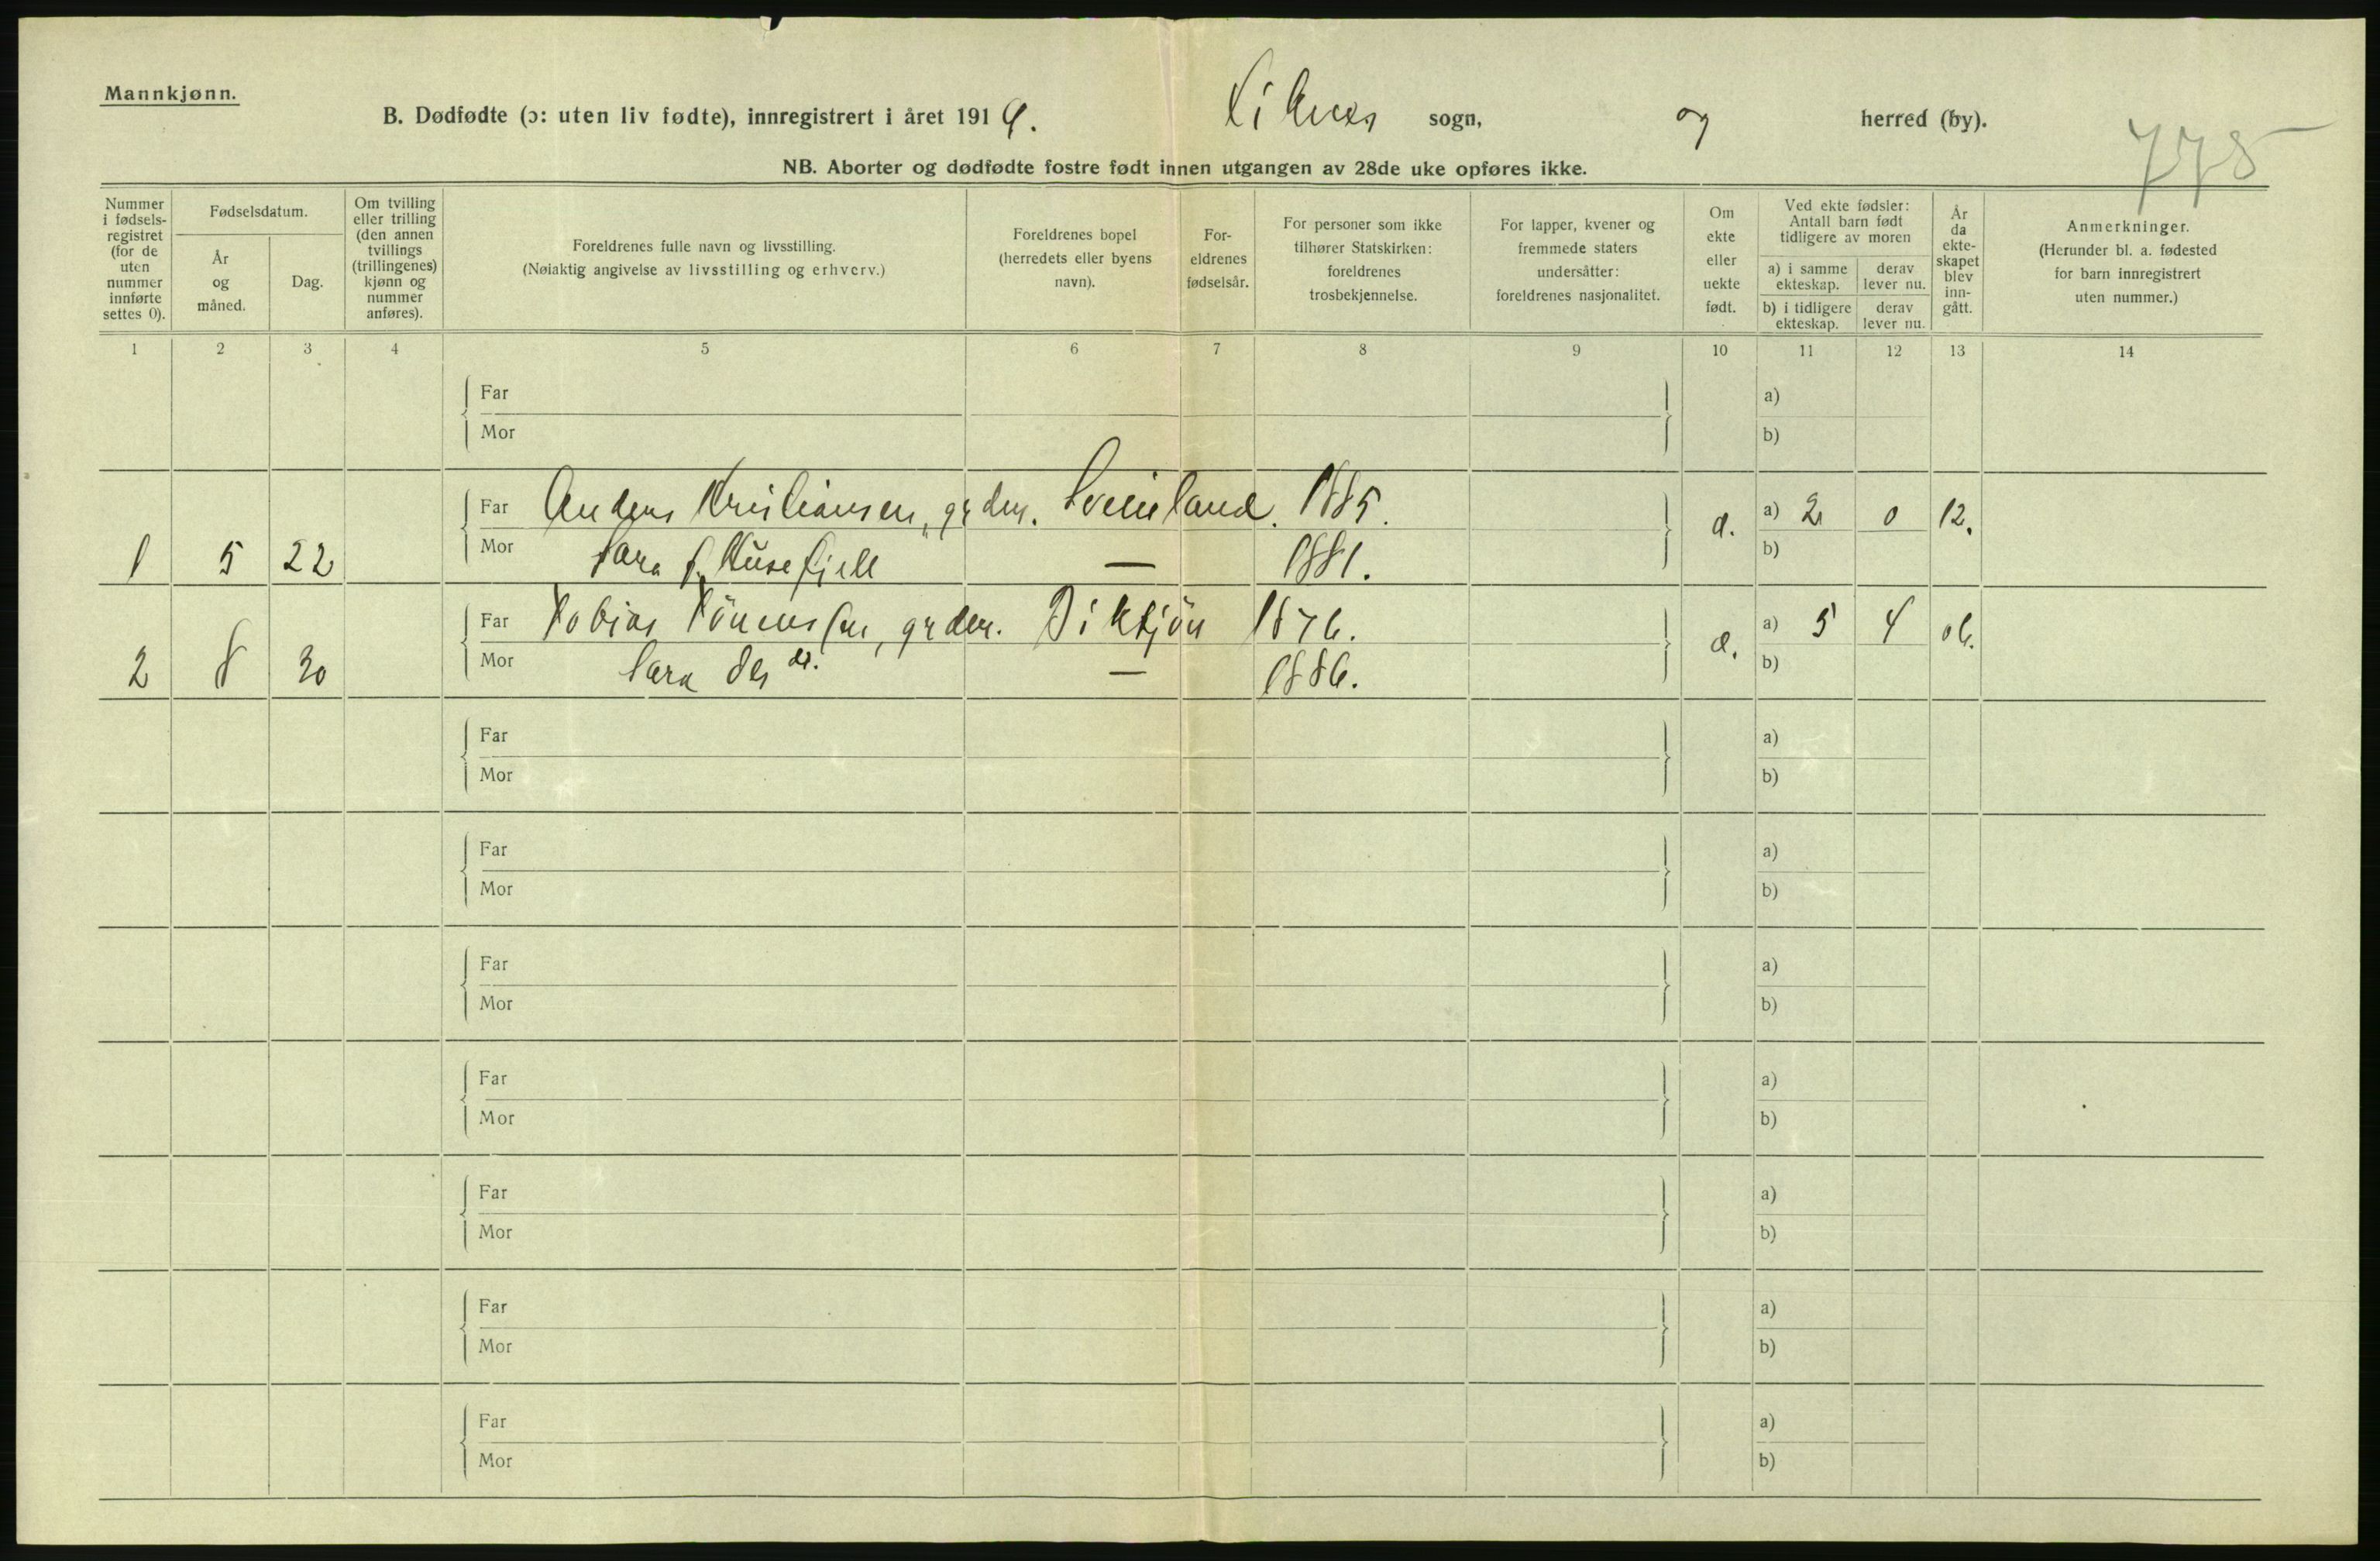 Mannkjønn.
B. Dødfødte (ɔ: uten liv fødte), innregistrert i året 1919. sogn, og herred (by).
775
NB. Aborter og dødfødte fostre født innen utgangen av 28de uke opføres ikke.
Nummer i fødsels-registret (for de uten nummer innførte settes 0).
Fødselsdatum.
År og måned.
Dag.
Om tvilling eller trilling (den annen tvillings (trillingenes) kjønn og nummer anføres).
Foreldrenes fulle navn og livsstilling.
(Nøiaktig angivelse av livsstilling og erhverv.)
Foreldrenes bopel (herredets eller byens navn).
For-eldrenes fødselsår.
For personer som ikke tilhører Statskirken: foreldrenes trosbekjennelse.
For lapper, kvener og fremmede staters undersåtter: foreldrenes nasjonalitet.
Om ekte eller uekte født.
Ved ekte fødsler: Antall barn født tidligere av moren
a) i samme ekteskap.
derav lever nu.
b) i tidligere ekteskap.
derav lever nu.
År da ekte-skapet blev inn-gått.
Anmerkninger.
(Herunder bl. a. fødested for barn innregistrert uten nummer.)
1 2 3 4 5 6 7 8 9 10 11 12 13 14
Far a)
Mor b)
Far Anders Kristiansen, grdm. 1885. a) 2 0 12.
1 5 22 Mor Sara f. — 1881. b)
Far Tobias Tönnessen, grdm. 1876. a) 5 4 06.
2 8 30 Mor Sara — 1886. b)
Far a)
Mor b)
Far a)
Mor b)
Far a)
Mor b)
Far a)
Mor b)
Far a)
Mor b)
Far a)
Mor b)
Far a)
Mor b)